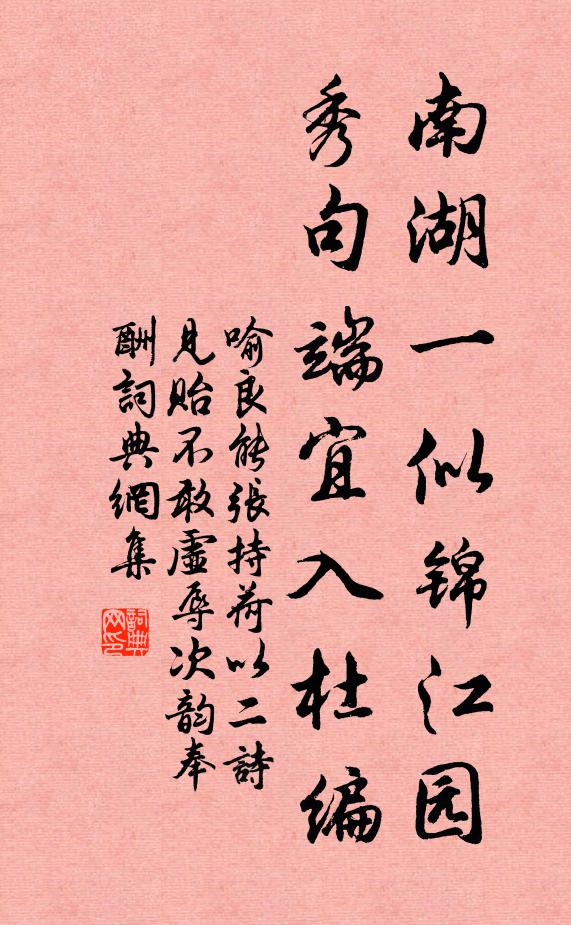 南湖一似锦江园
秀句端宜入杜编
喻良能張持荷以二詩
見贻不敢虛辱次韵奉
酬詞典網集
詞典
网印